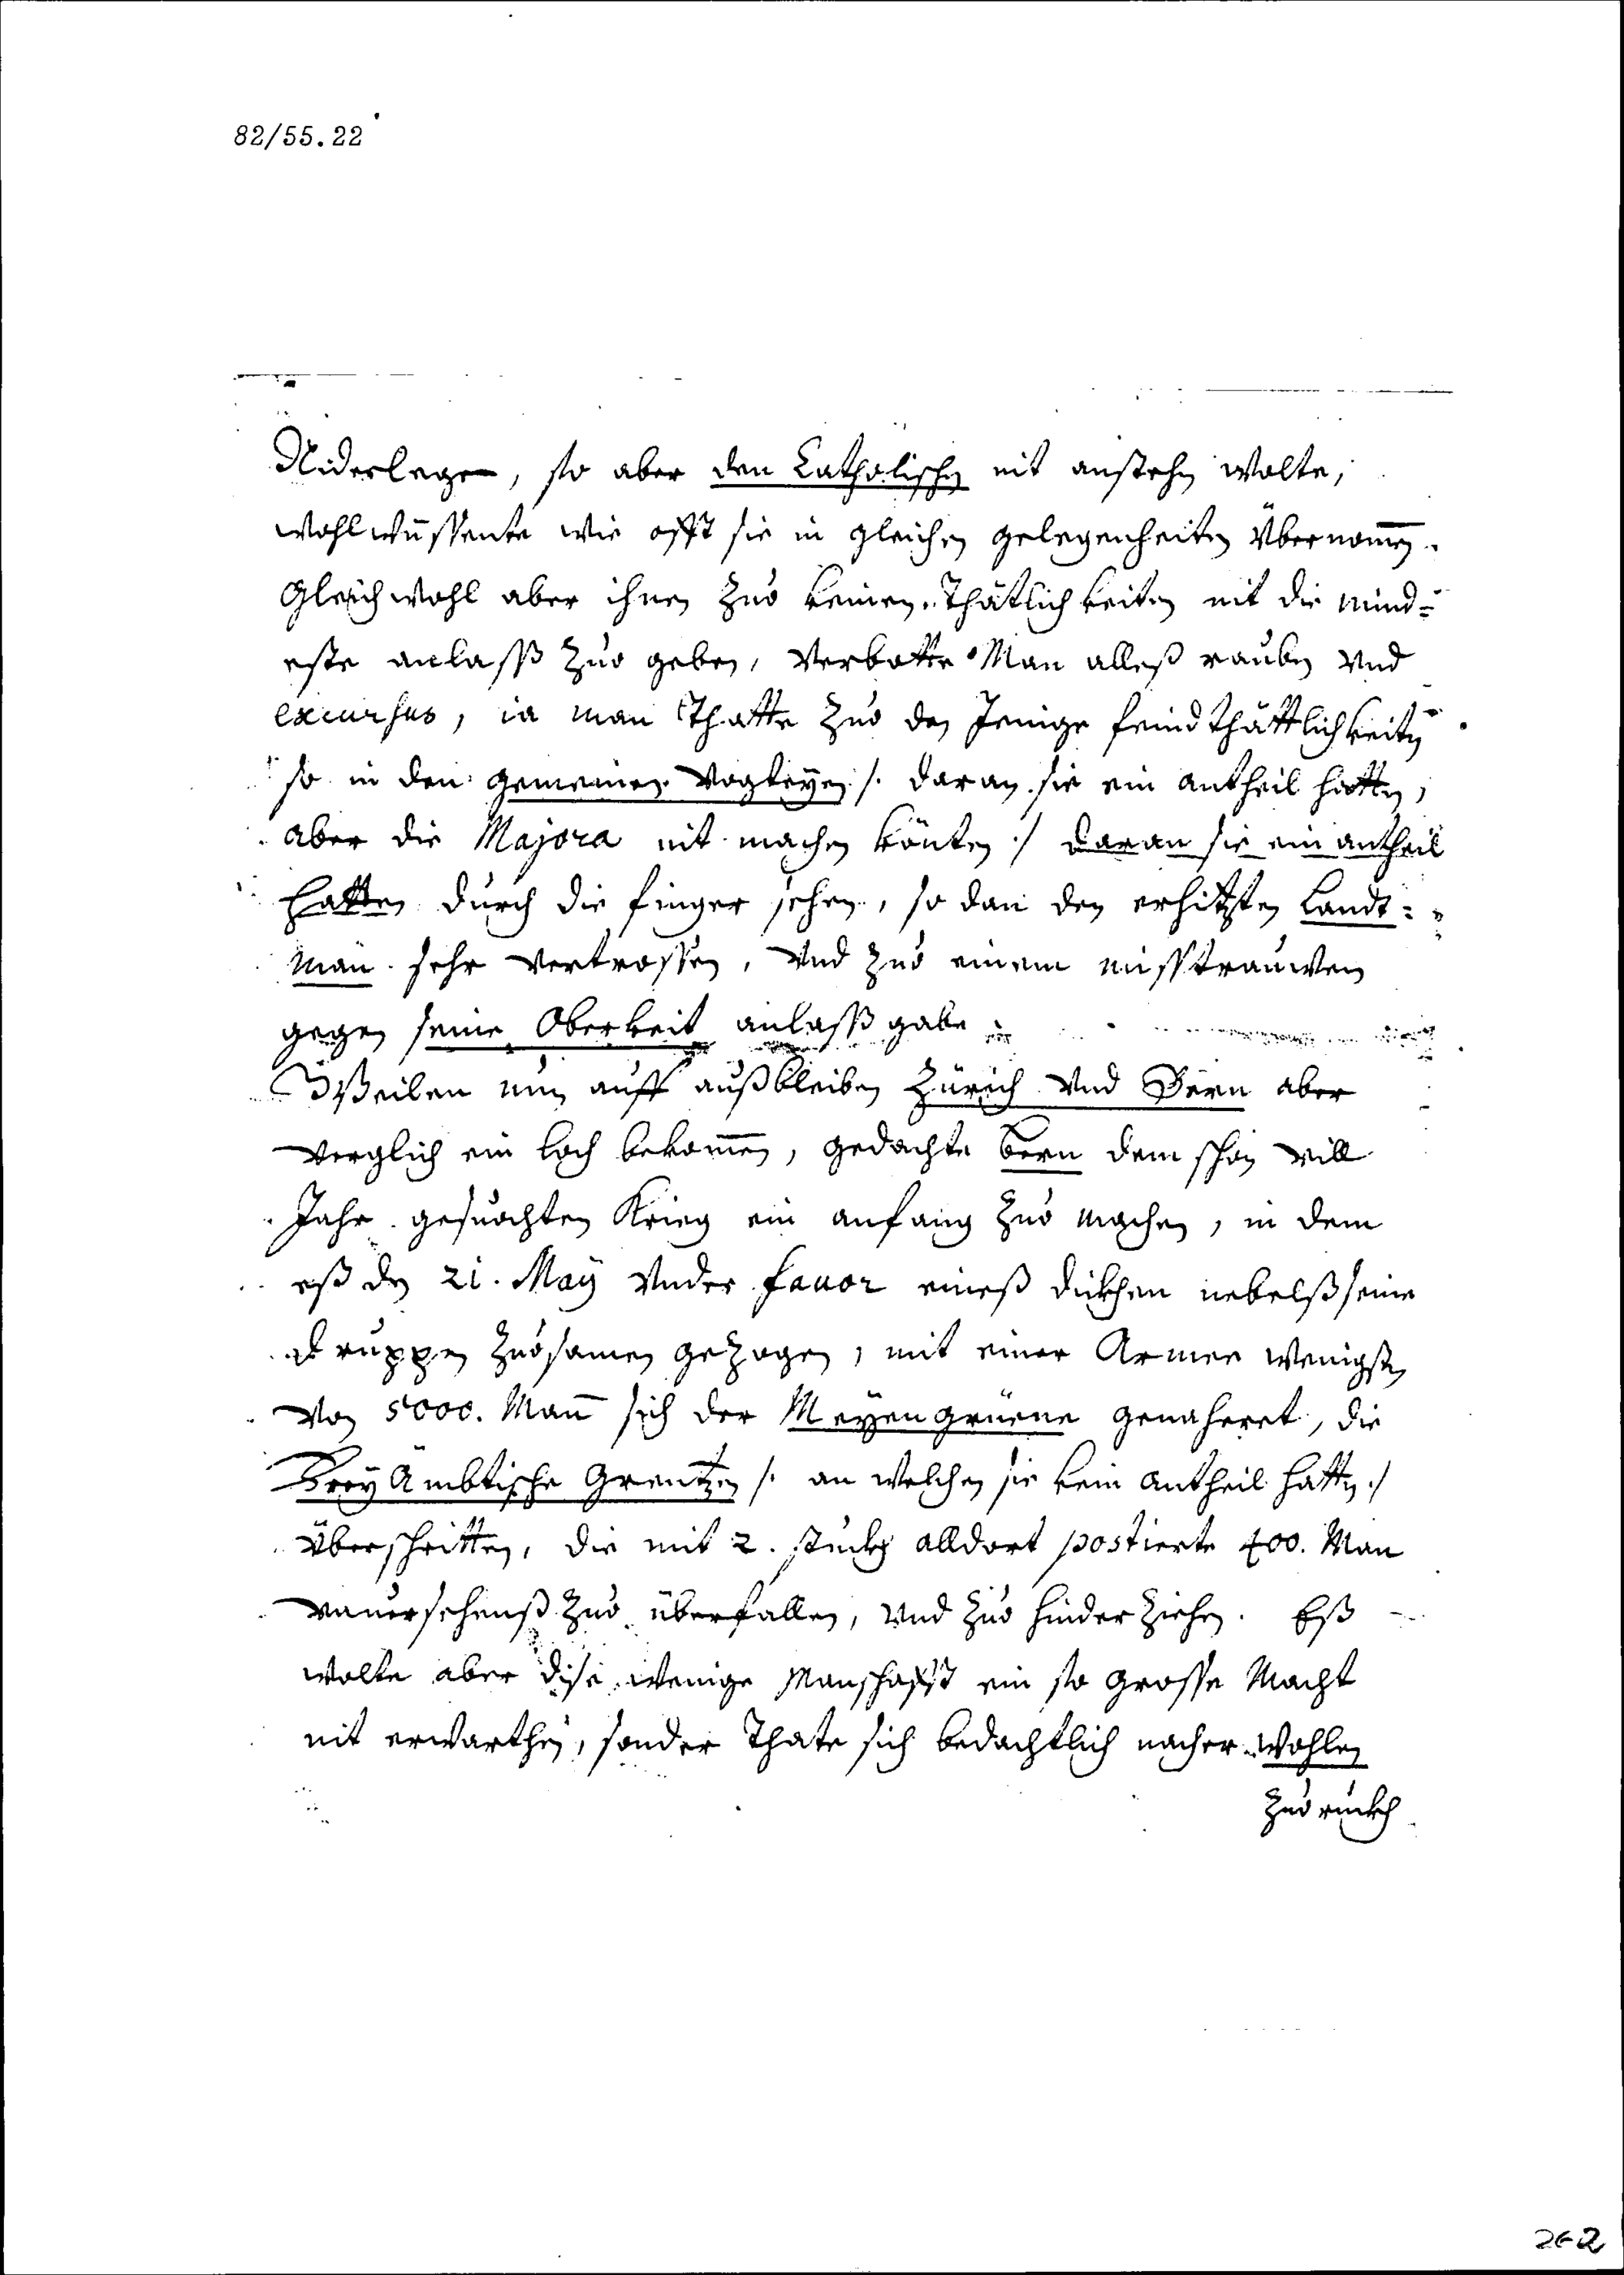 82/55.22
Niderlegen, so aber den Catholischen nit anstehn wolte,
wohlwüssente wie offt sie in gleichen gelegenheiten übernomen.
Gleichwohl aber ihnen zuo keinen Thätlichkeiten nit die mind=
este anlasß zuo geben, verbotte Man alleß rauben und
excursus, ia man Thatte zuo den Jenige feindthättlichkeiten
so in den gemeinen Vogteyen /. daran sie ein antheil hatten,
aber die Majora nit machen könten ./ daran sie ein antheil
hatten durch die finger sehen, so dan den erhitzten Landt=
man sehr vertrossen, und zuo einem missträuwen
gegen seine Oberkeit anlasß gabe.
Weilen nun auff außbleiben Zürich und Bern aber
verglich ein loch bekomen, gedachte Bern dem schon vill
Jahr gesuochten Krieg ein anfang zuo machen, in dem
eß den 21. Maÿ under favor eineß dickhen nebelß seine
Truppen zuosamen gezogen, mit einer Armee wenigsten
von 5000. Man sich der Meyengrüene genaheret, die
Frey Ämbtische Grentzen /. an welchen sie kein antheil hatten ./
überschritten, die mit 2. stuckh alldort postierte 400. Man
unversehenß zuo überfallen, und zuo hinderziehen. Eß
wolte aber dise wenige Manschafft ein so grosse Macht
nit erwarthen, sonder Thate sich bedachtlich nacher Wohlen
zuoruckh
262